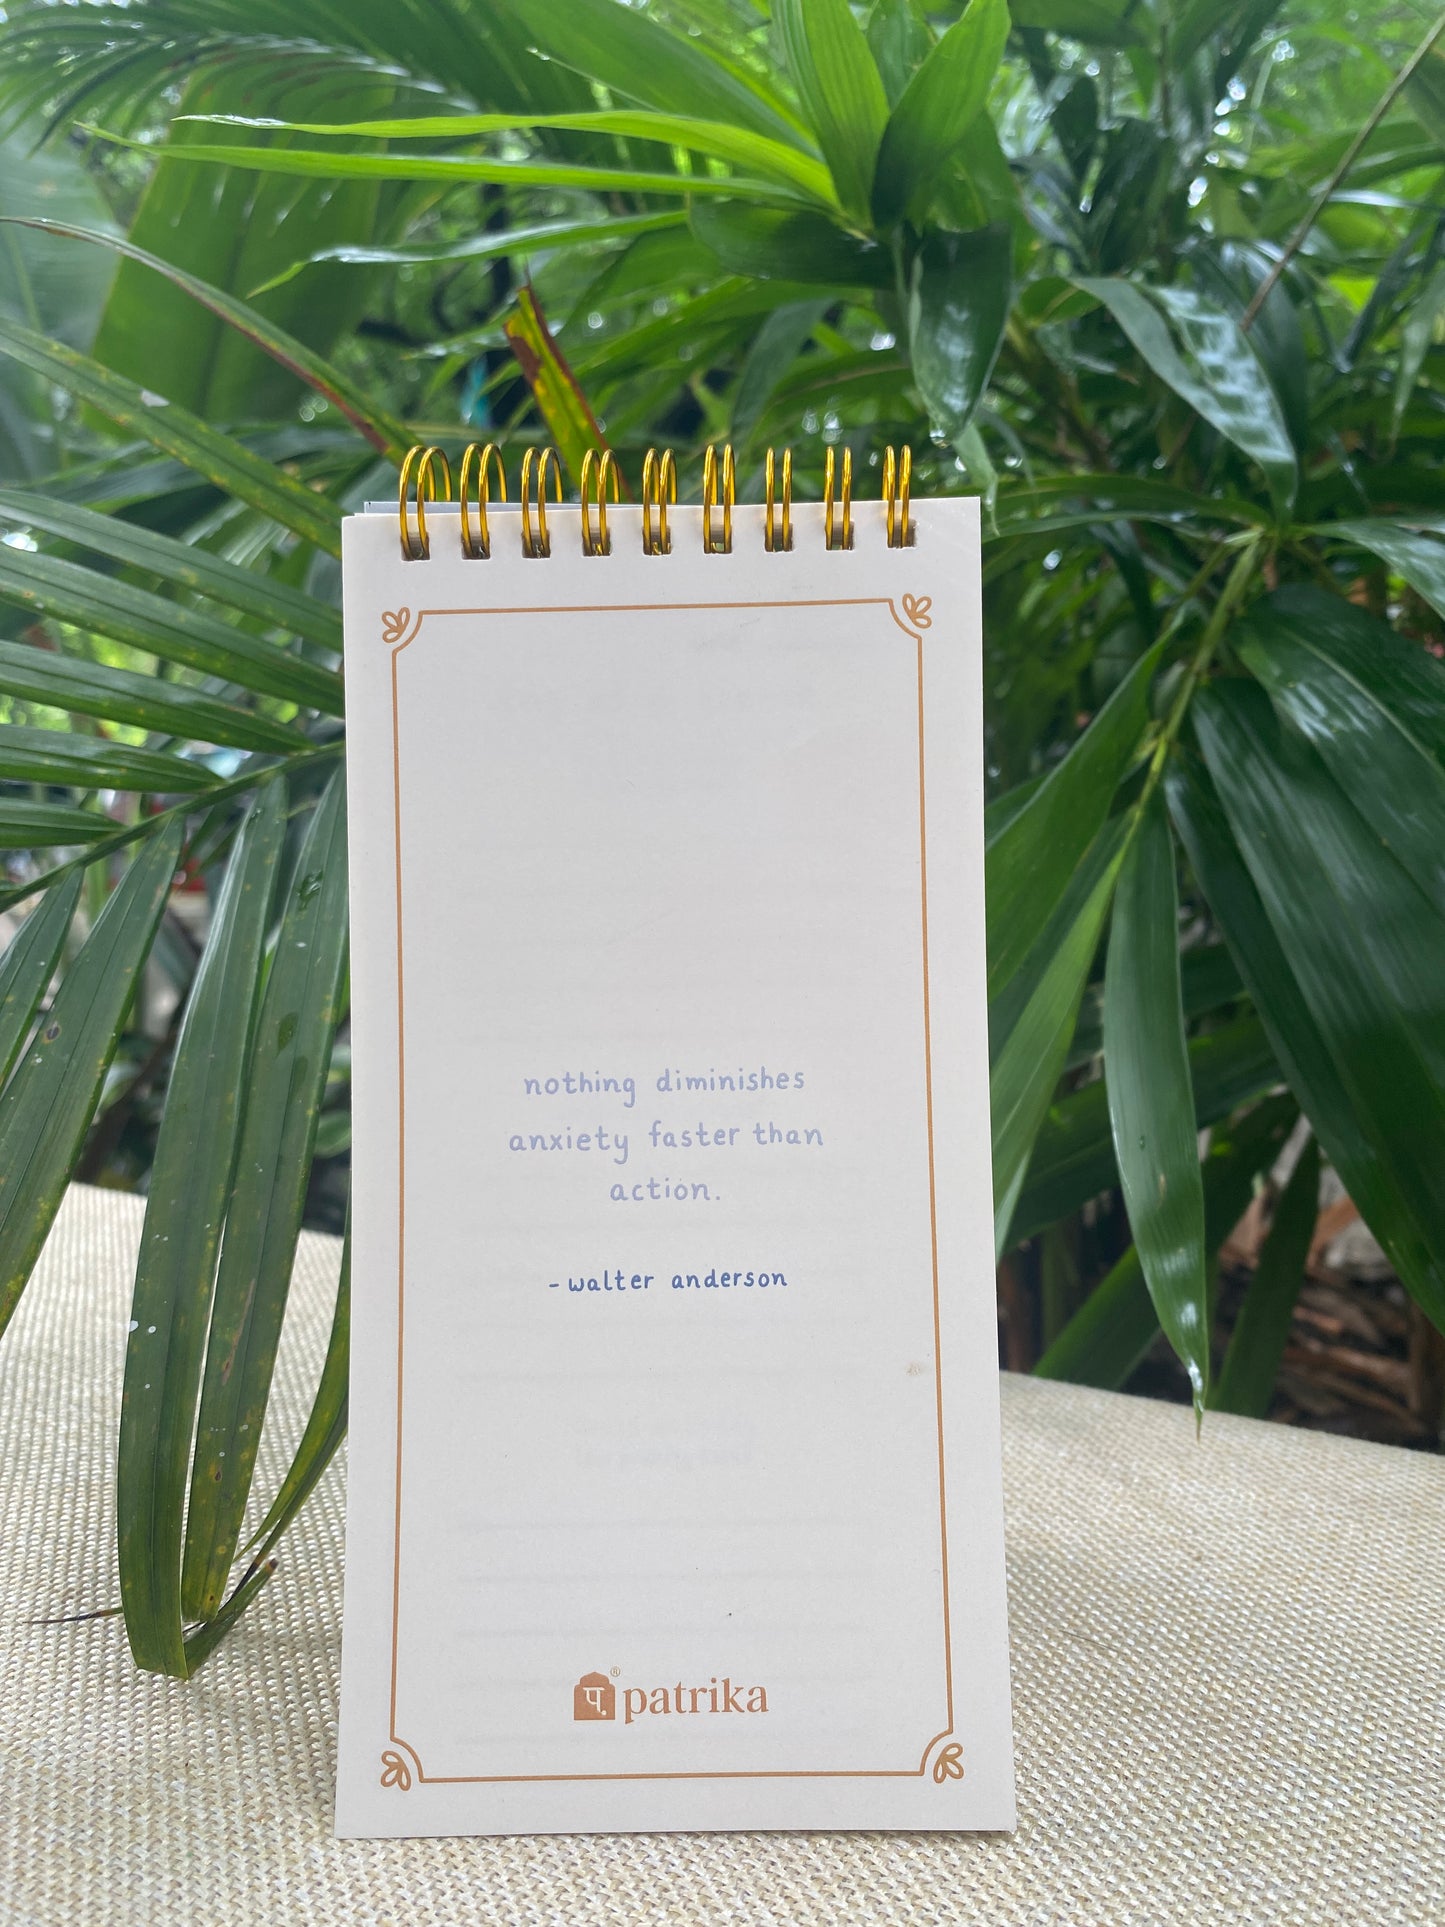 nothing diminishes
anxiety faster than
action.
- walter anderson
प. ® patrika